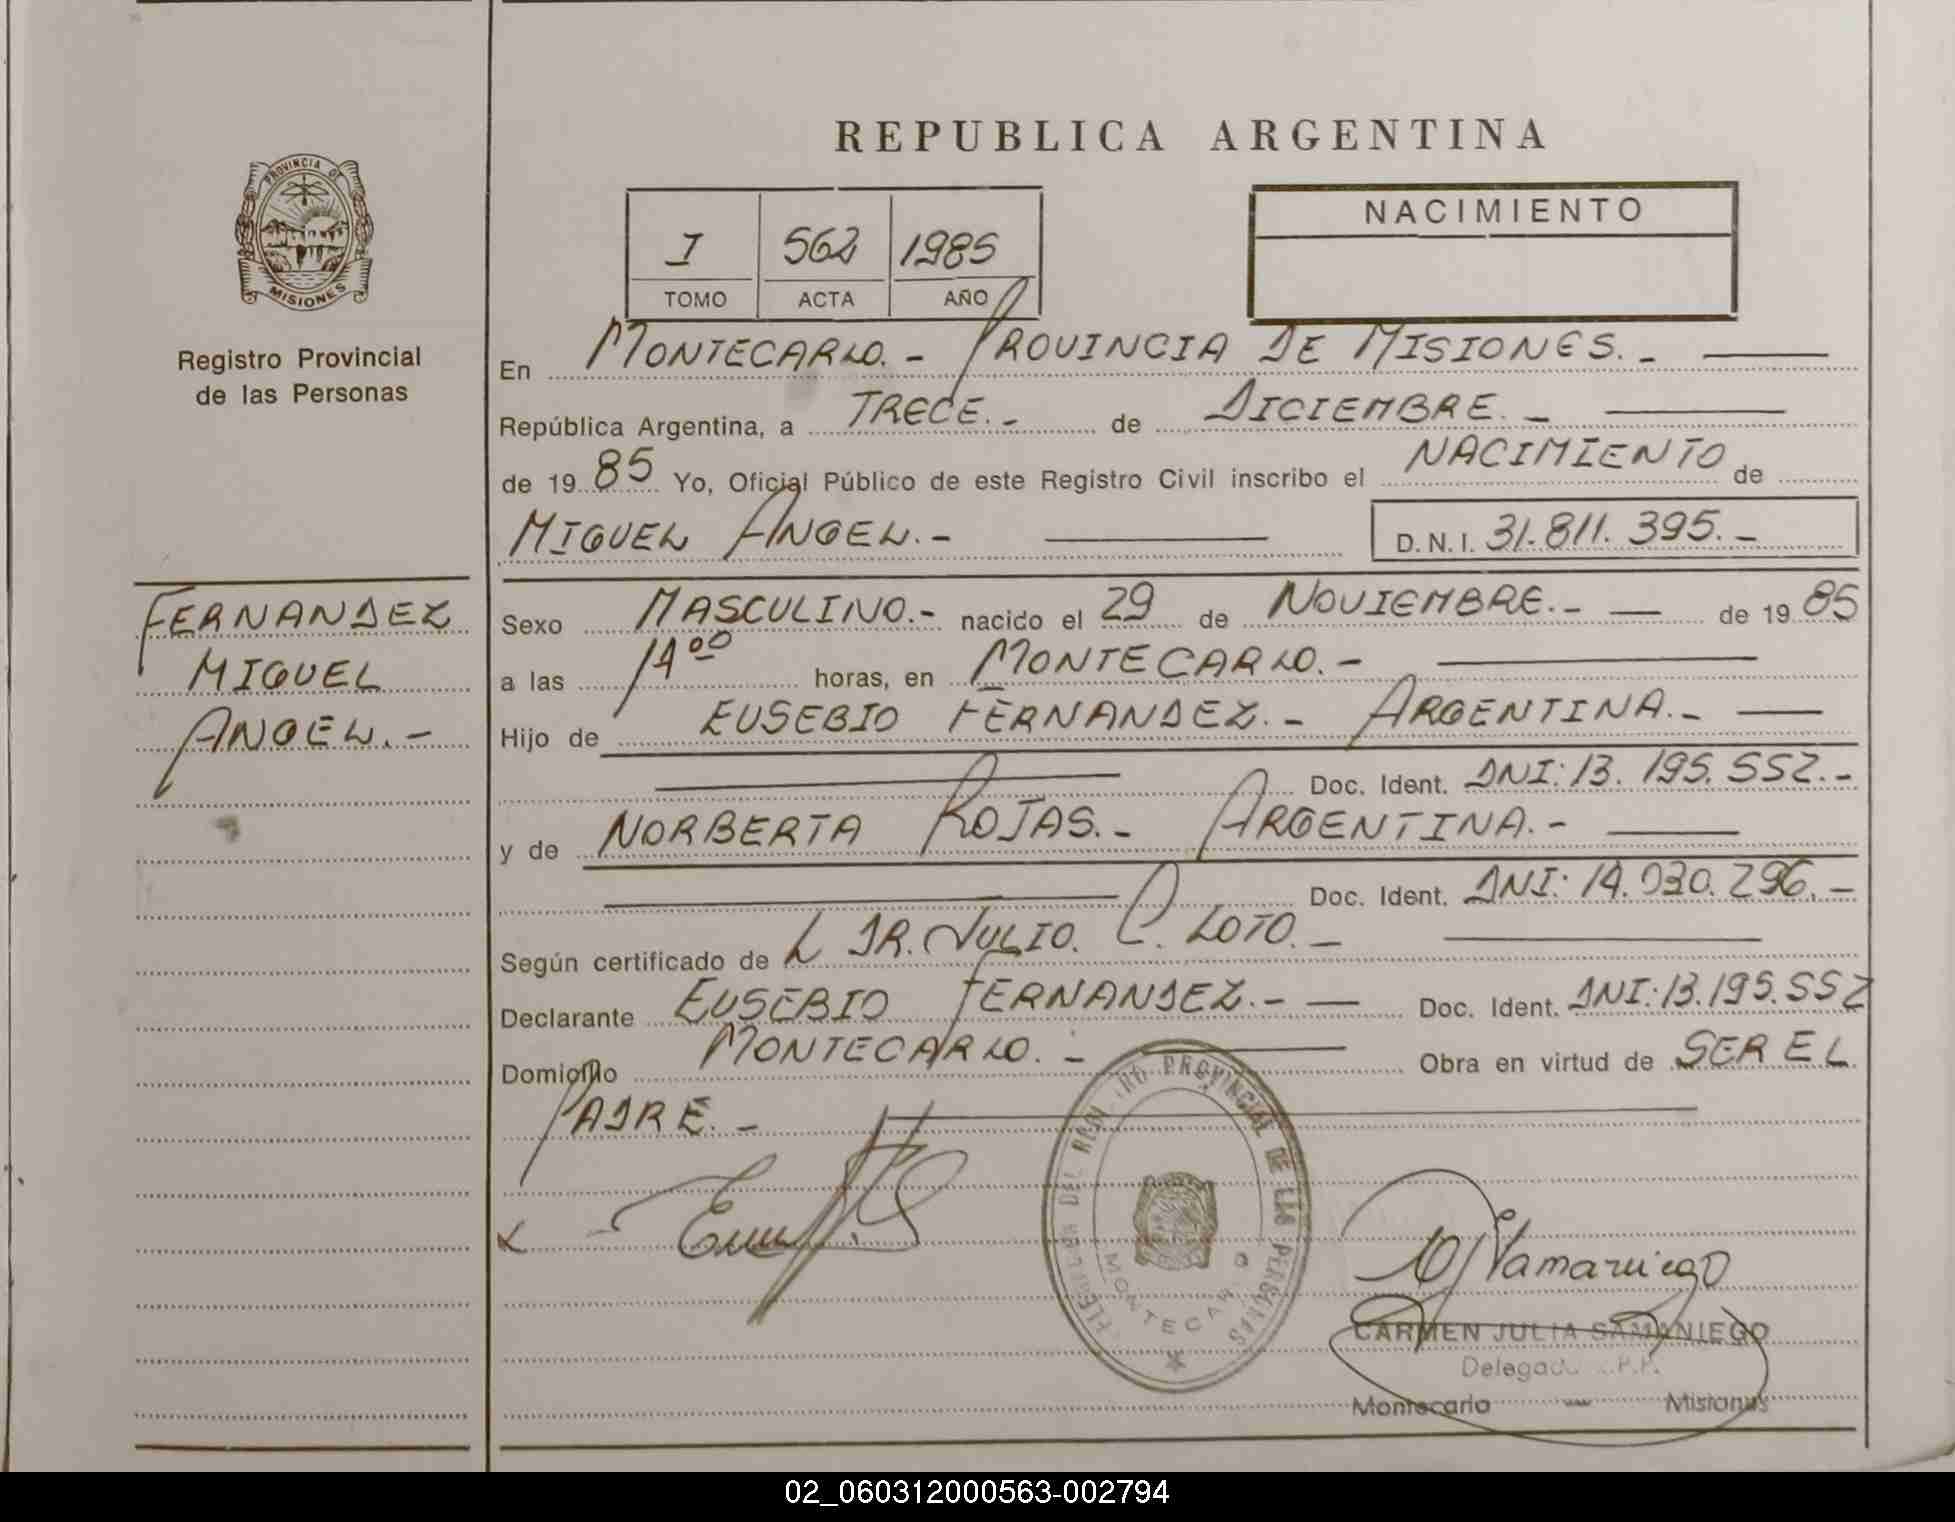 REPUBLICA ARGENTINA
PROVINCIA DE
MISIONES
Registro Provincial
de las Personas
I 562 1985
TOMO ACTA AÑO
NACIMIENTO
En MONTECARLO.- PROVINCIA DE MISIONES.-
República Argentina, a TRECE.- de DICIEMBRE.-
de 1985 Yo, Oficial Público de este Registro Civil inscribo el NACIMIENTO de
MIGUEL ANGEL.- D.N.I. 31.811.395.-
FERNANDEZ
MIGUEL
ANGEL.-
Sexo MASCULINO.- nacido el 29 de NOVIEMBRE.- de 1985
a las 14⁰⁰ horas, en MONTECARLO.-
Hijo de EUSEBIO FERNANDEZ.- ARGENTINA.-
Doc. Ident. DNI: 13.195.552.-
y de NORBERTA ROJAS.- ARGENTINA.-
Doc. Ident. DNI: 14.030.296.-
Según certificado de L DR. JULIO. C. LOTO.-
Declarante EUSEBIO FERNANDEZ.- Doc. Ident. DNI: 13.195.552
Domicilio MONTECARLO.- Obra en virtud de SER EL
PADRE.-
PROVINCIAL DE LAS PERSONAS
MONTECARLO
CJSamaniego
CARMEN JULIA SAMANIEGO
Montecarlo - Misiones
02_060312000563-002794